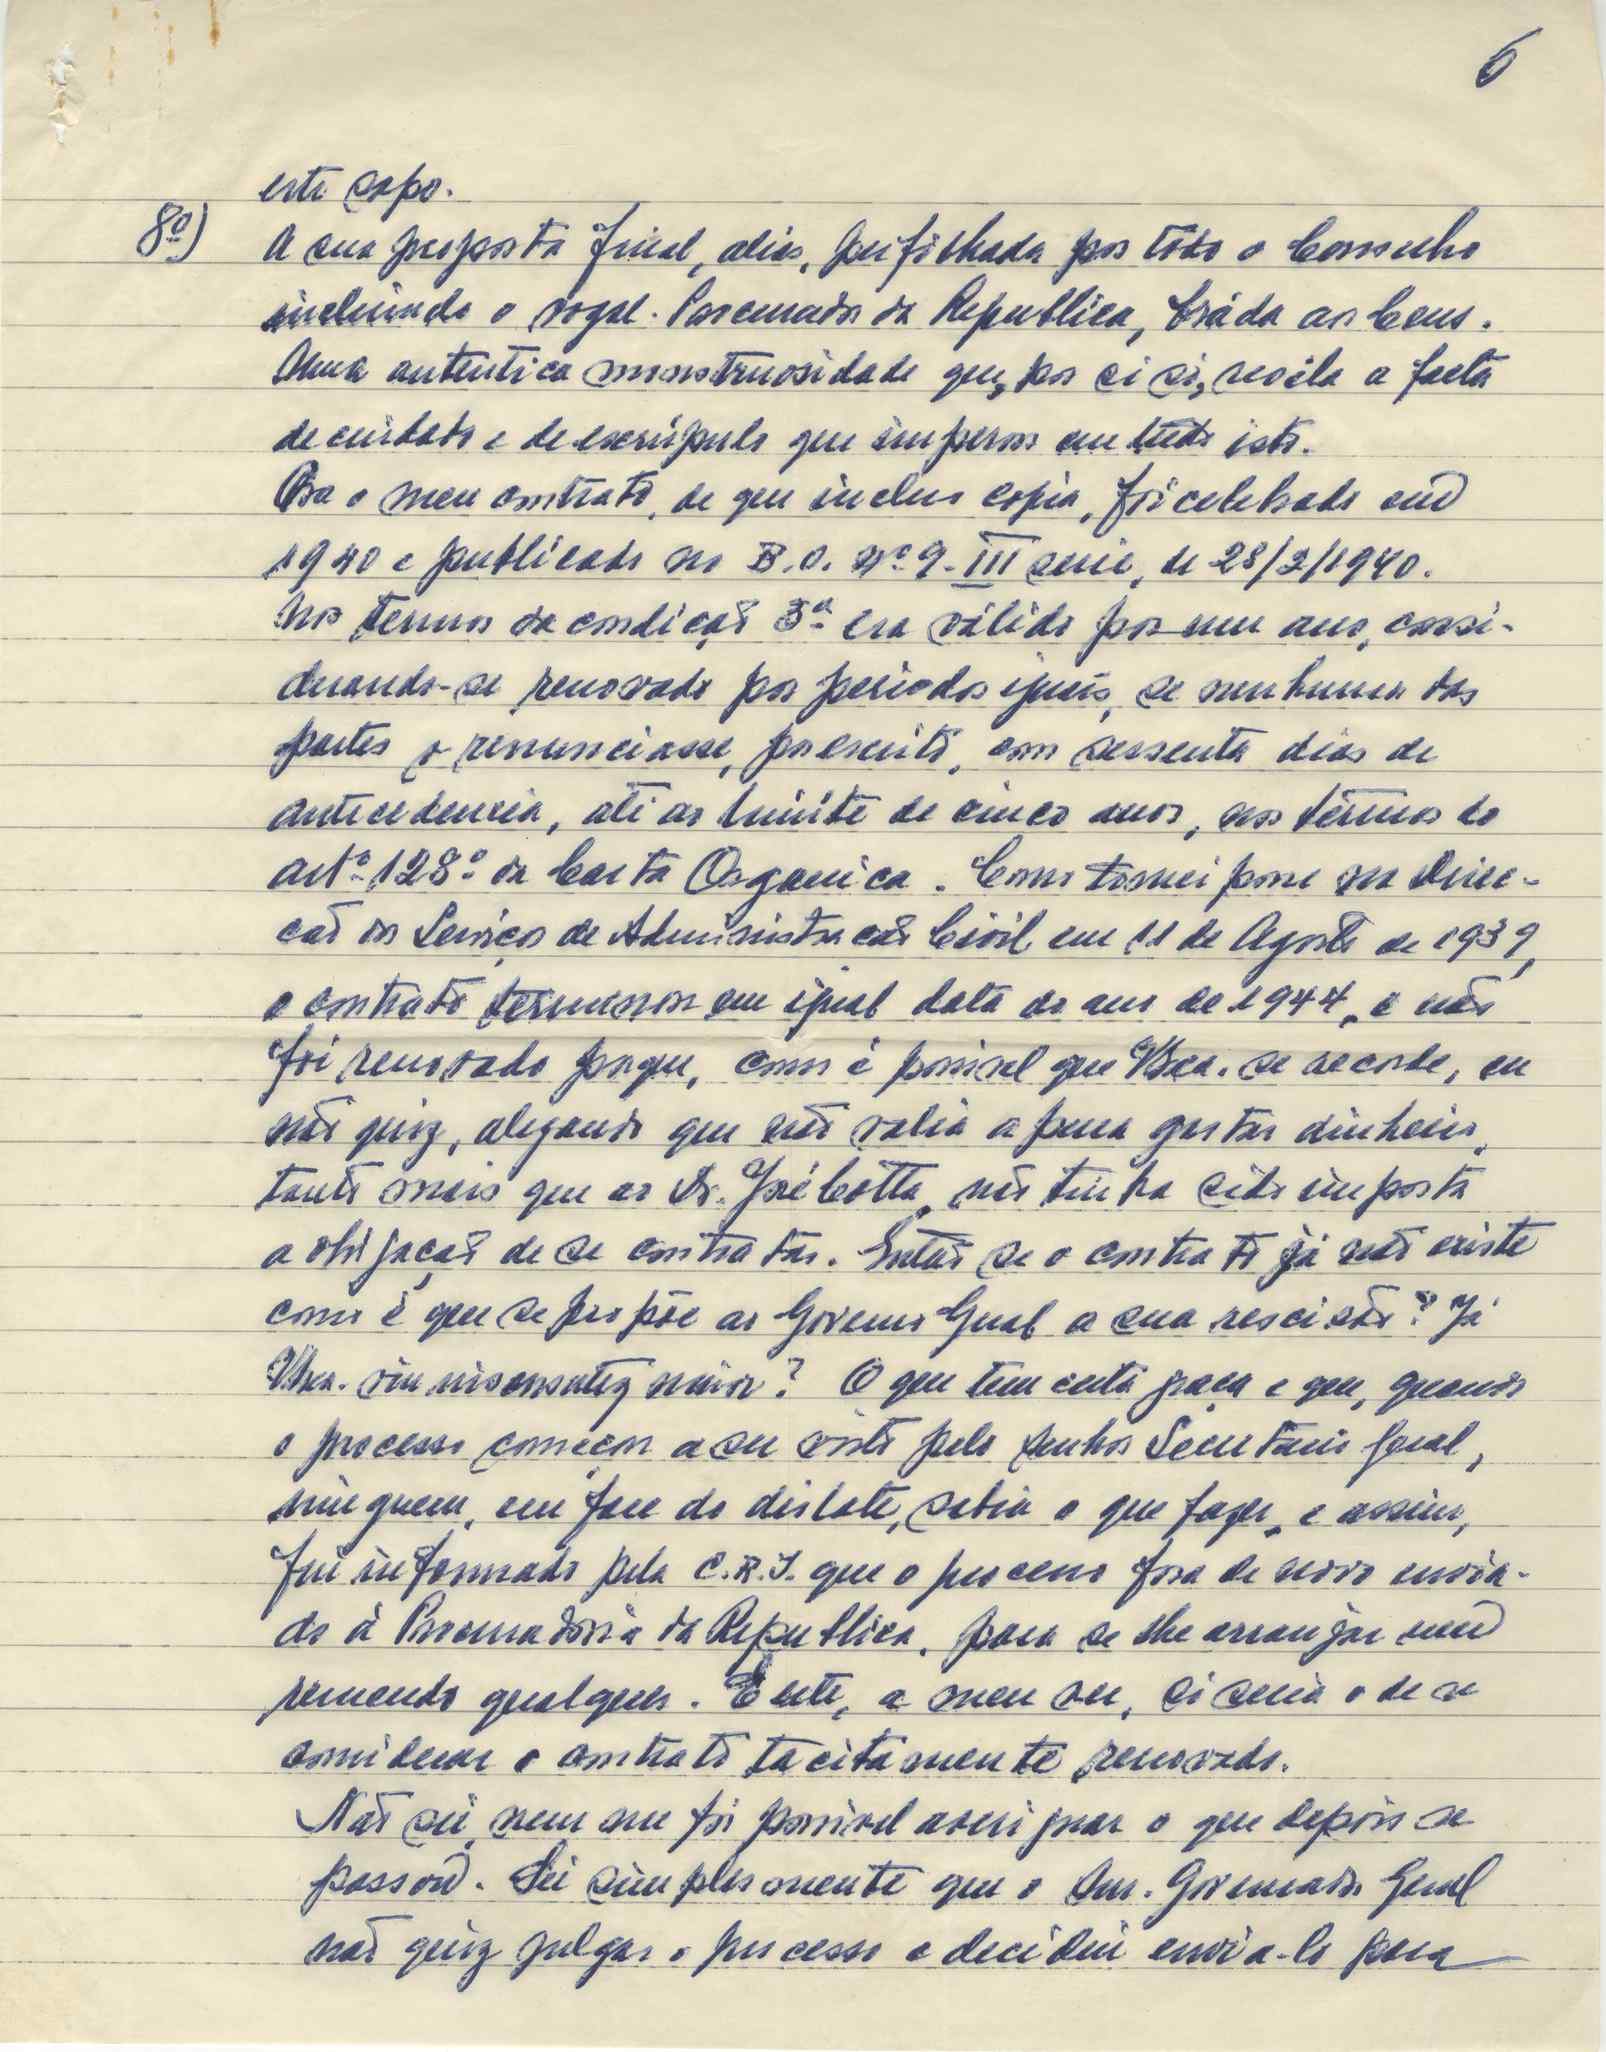 6
este sapo.
8º) A sua proposta final, alias, perfilhada por todo o Conselho
incluindo o vogal-Procurador da Republica, bráda aos Ceus.
Uma autentica monstruosidade que, por si só, revéla a falta
de cuidado e de escrúpulo que imperou em tudo isto.
Ora o meu contrato, de que incluo copia, foi celebrado em
1940 e publicado no B.O. nº 9-III serie, de 28/2/1940.
Nos termos da condição 3ª era válido por um ano, consi-
derando-se renovado por periodos iguais, se nenhuma das
partes o renunciasse, por escrito, com sessenta dias de
antecedencia, até ao limite de cinco anos, nos termos do
artº 128º da Carta Organica. Como tomei posse na Direc-
ção dos Serviços de Administração Civil em 11 de Agosto de 1939,
o contrato terminou em igual data do ano de 1944, e não
foi renovado porque, como é possivel que V.Exa. se recorde, eu
não quiz, alegando que não valia a pena gastar dinheiro,
tanto mais que ao Dr. José Cotta, não tinha sido imposta
a obrigação de se contratar. Então se o contrato já não existe
como é que se propõe ao Governo Geral a sua rescisão? Já
V.Exa. viu insensatez maior? O que tem certa graça e que, quando
o processo começou a ser visto pelo senhor Secretario Geral,
ninguem, em face do dislate, sabia o que fazer, e assim,
fui informado pela C.R.I. que o processo fora de novo envia-
do à Procuradoria da Republica, para se lhe arranjar um
remendo qualquer. Este, a meu ver, só seria o de se
considerar o contrato tacitamente renovado.
Não sei, nem me foi possivel averiguar o que depois se
passou. Sei simplesmente que o Snr. Governador Geral
não quiz julgar o processo e decidiu envia-lo para